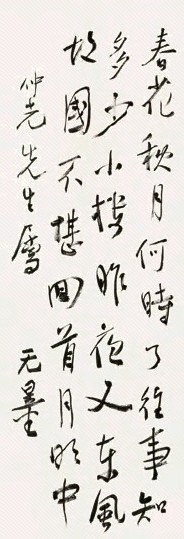 春花秋月何時了往事知
多少小樓昨夜又東風
故國不堪回首月明中
仲光先生屬 无量